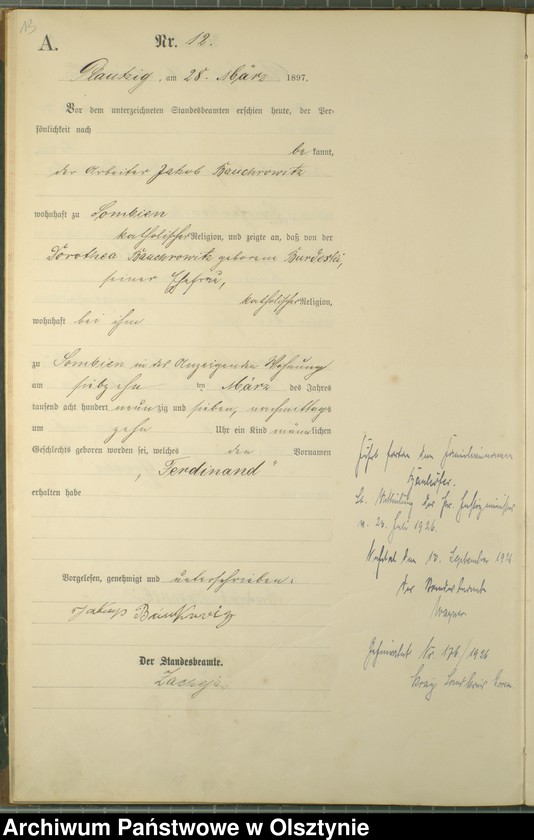 13
A.
Nr. 12.
am 28. März 1897.
Vor dem unterzeichneten Standesbeamten erschien heute, der Per-
sönlichkeit nach
be kannt,
der Arbeiter Jakob Bauchrowitz
wohnhaft zu Sombien
katholischer Religion, und zeigte an, daß von der
Dorothea Bauchrowitz geborene Burdeski,
seiner Ehefrau,
katholischer Religion,
wohnhaft bei ihm
zu Sombien in der Anzeigenden Wohnung
am siebzehn ten März des Jahres
tausend acht hundert neunzig und sieben, nachmittags
um zehn Uhr ein Kind männlichen
Geschlechts geboren worden sei, welches den Vornamen
„Ferdinand"
erhalten habe
Vorgelesen, genehmigt und unterschrieben:
Jakup
Der Standesbeamte.
Führt fortan den Familiennamen
lt. Mitteilung des Pr. Justizministers
v. 23. Juli 1926.
den 13. September 1926
Der Standesbeamte
Wagner
Nr. 176/1926
Archiwum Państwowe w Olsztynie